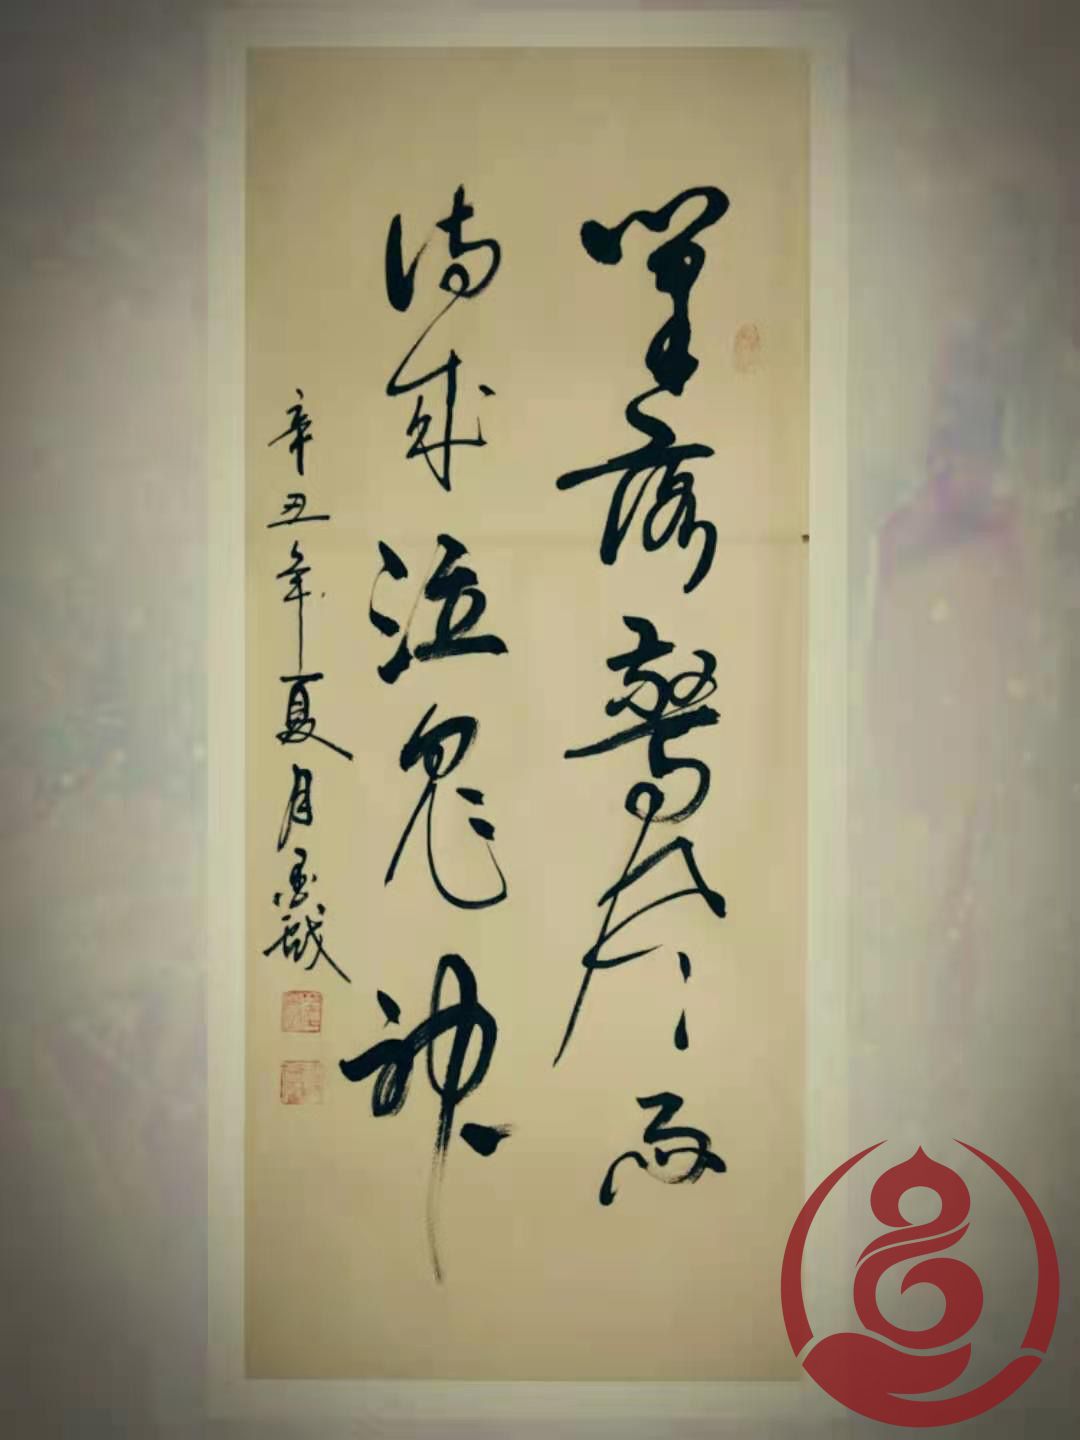 筆落驚風雨
詩成泣鬼神
辛丑年夏月